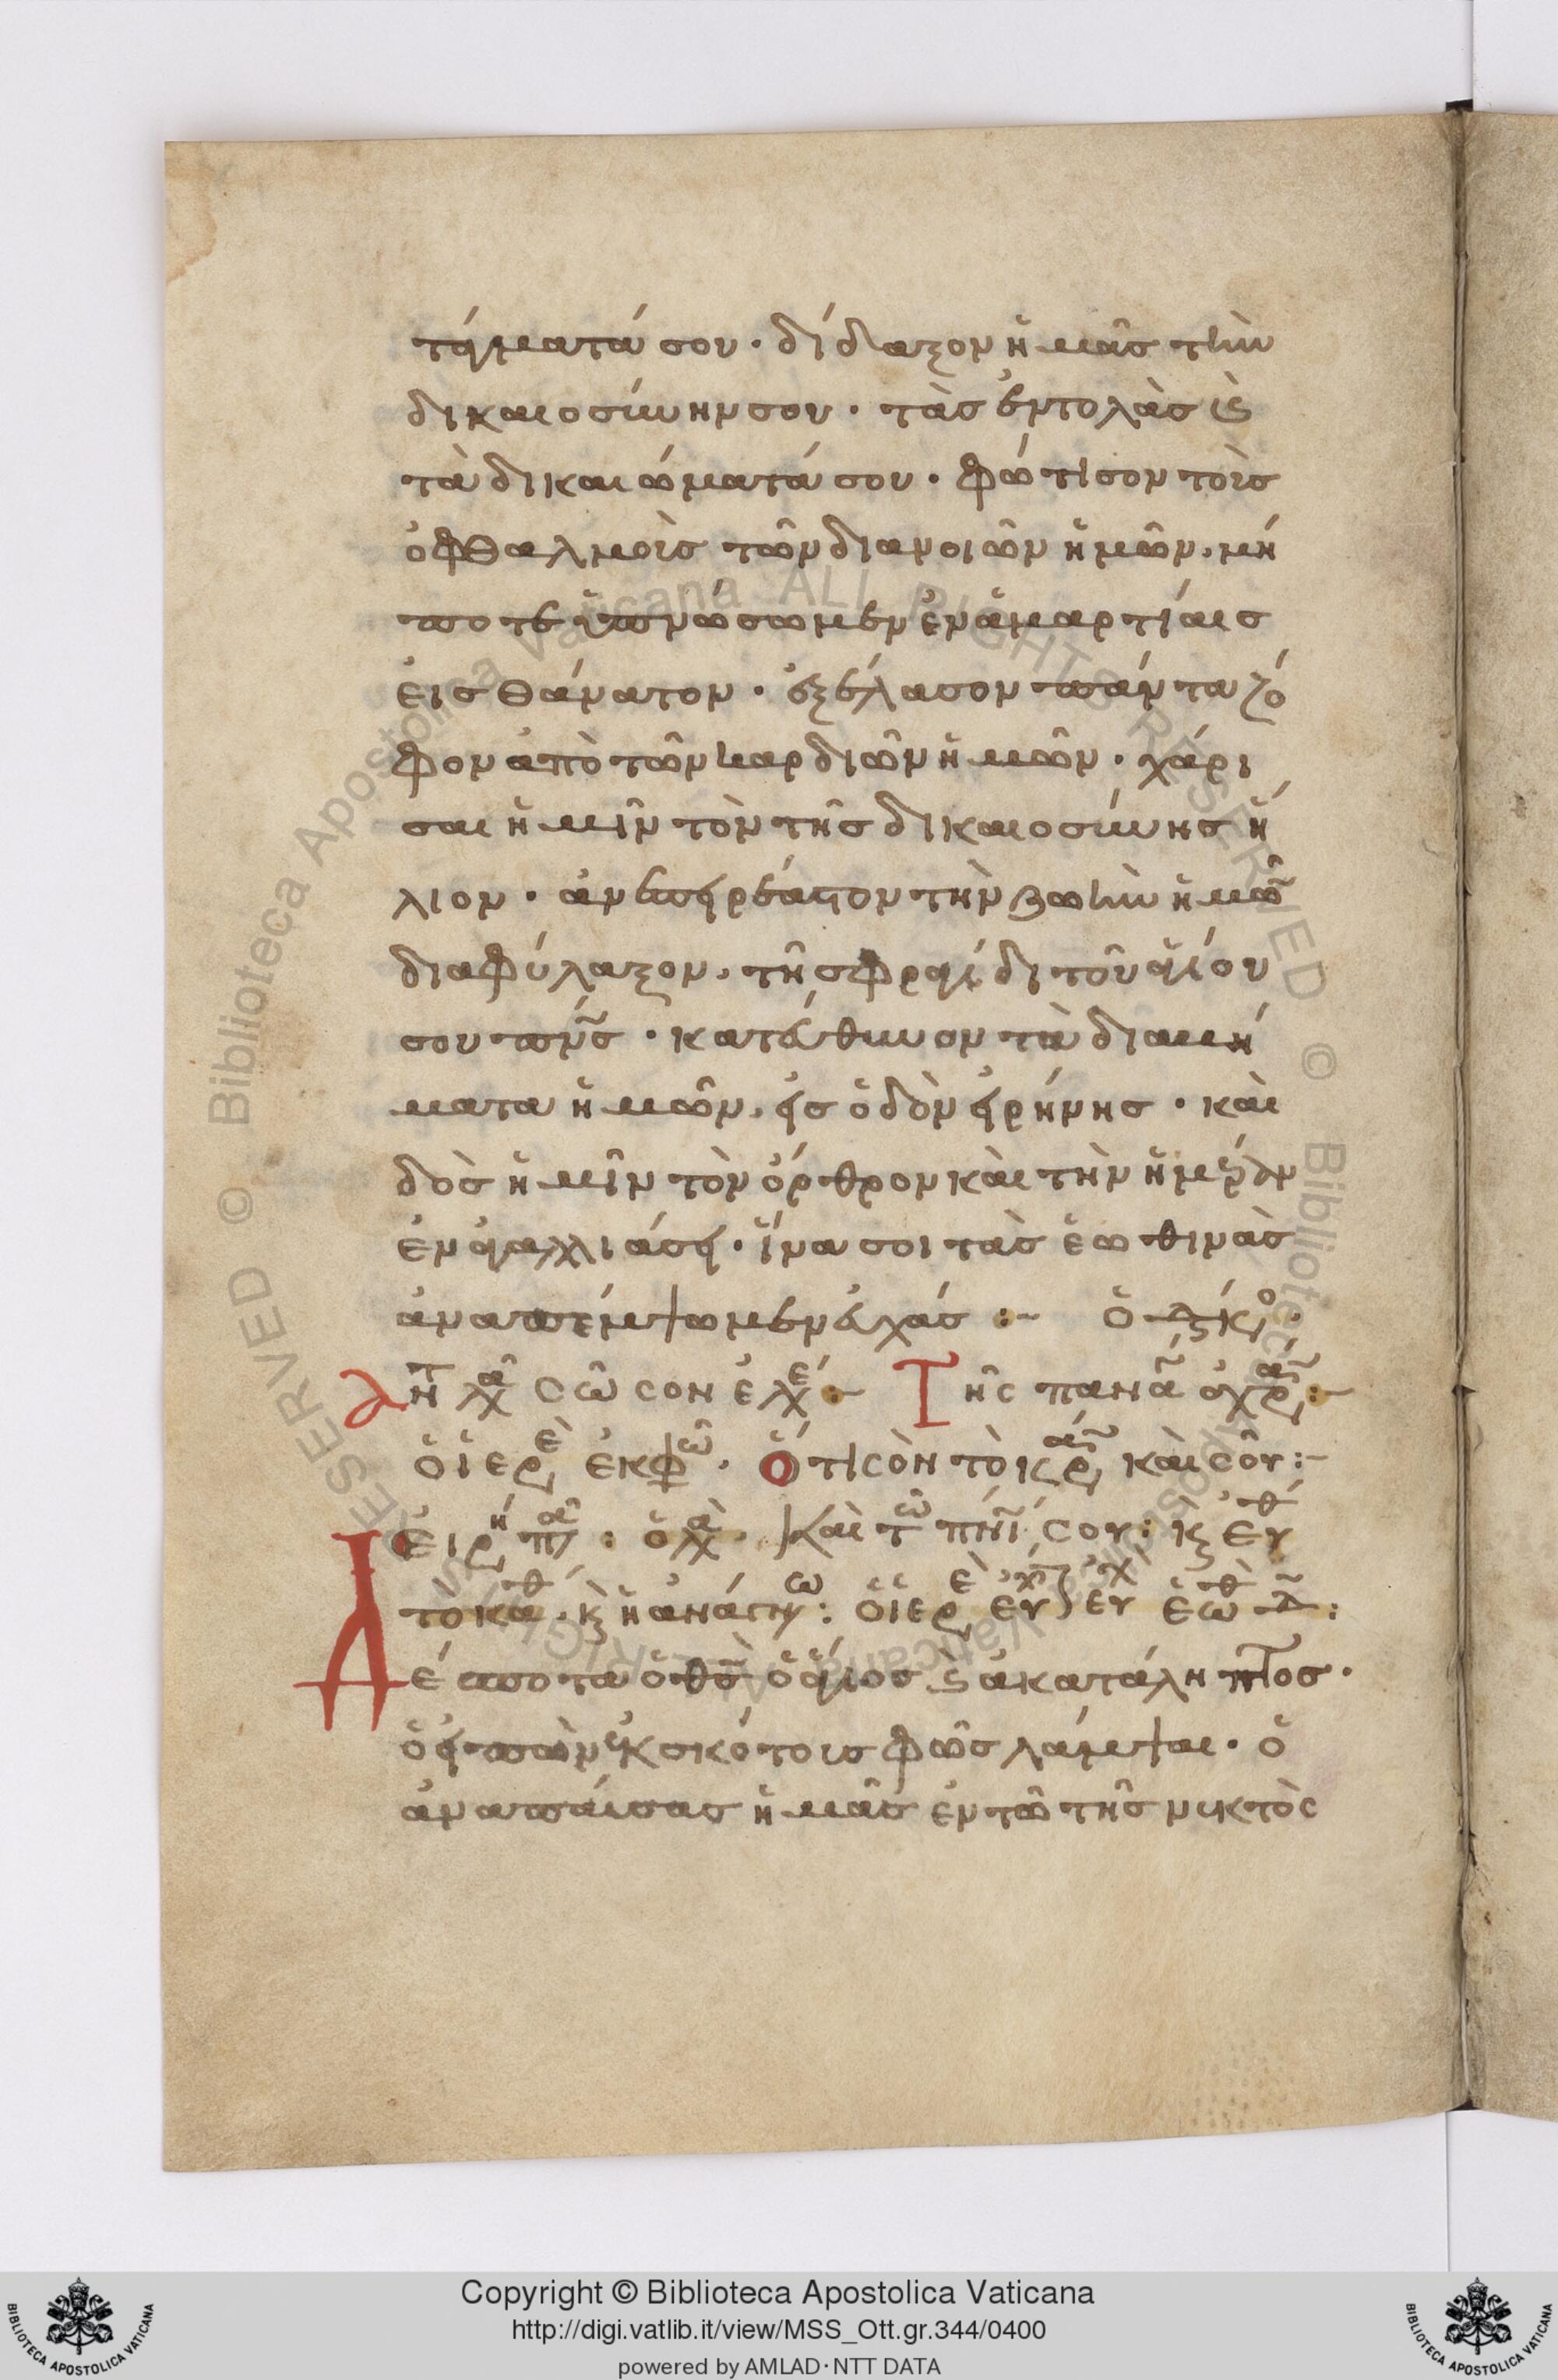 τήματά σου · δίδαξον ἡμᾶς τὴν
δικαιοσύνην σου · τὰς ἐντολὰς ϛ̀
τὰ δικαιώματά σου · φώτισον τοὺς
ὀφθαλμοὺς τῶν διανοιῶν ἡμῶν · μή
ποτε ὑπνώσωμεν ἐν ἁμαρτίαις
εἰς θάνατον · ἐξέλασον πάντα ζό
φον ἀπὸ τῶν καρδιῶν ἡμῶν · χάρι
σαι ἡμῖν τὸν τῆς δικαιοσύνης ἥ
λιον · ἀνεπηρέαστον τὴν ζωὴν ἡμῶ
διαφύλαξον · τῆ σφραγίδι τοῦ ἁγίου
σου πν̅ς · κατεύθυνον τὰ διαβή
ματα ἡμῶν · εἰς ὁδὸν εἰρήνης · καὶ
δὸς ἡμῖν τὸν ὄρθρον καὶ τὴν ἡμέραν
ἐν ἀγαλλιάσει · ἵνα σοι τὰς ἑωθινὰς
ἀναπέμπωμεν εὐχάς :~ ὁ διάκο
σῶσον ἐλε :~ Τῆς πανα ἀχρ :~
ὁ ἱερε ἐκφω · Ὅτι σὸν τὸ κρ καὶ σοῦ :~
Εἰρη πα : ὁ λα · Καὶ τῶ πνι σου : κ ευ
ὁ ἱερε εὐχ
Δέσποτα ὁ θς̅ ὁ ἅγιος ϛ̀ ἀκατάληπτος ·
ὁ εἰπὼν ἐκ σκότους φῶς λάμψαι · ὁ
ἀναπαύσας ἡμᾶς ἐν τῶ τῆς νυκτὸς
© Biblioteca Apostolica Vaticana ALL RIGHTS RESERVED
Copyright © Biblioteca Apostolica Vaticana
http://digi.vatlib.it/view/MSS_Ott.gr.344/0400
powered by AMLAD · NTT DATA
BIBLIOTECA APOSTOLICA VATICANA
BIBLIOTECA APOSTOLICA VATICANA